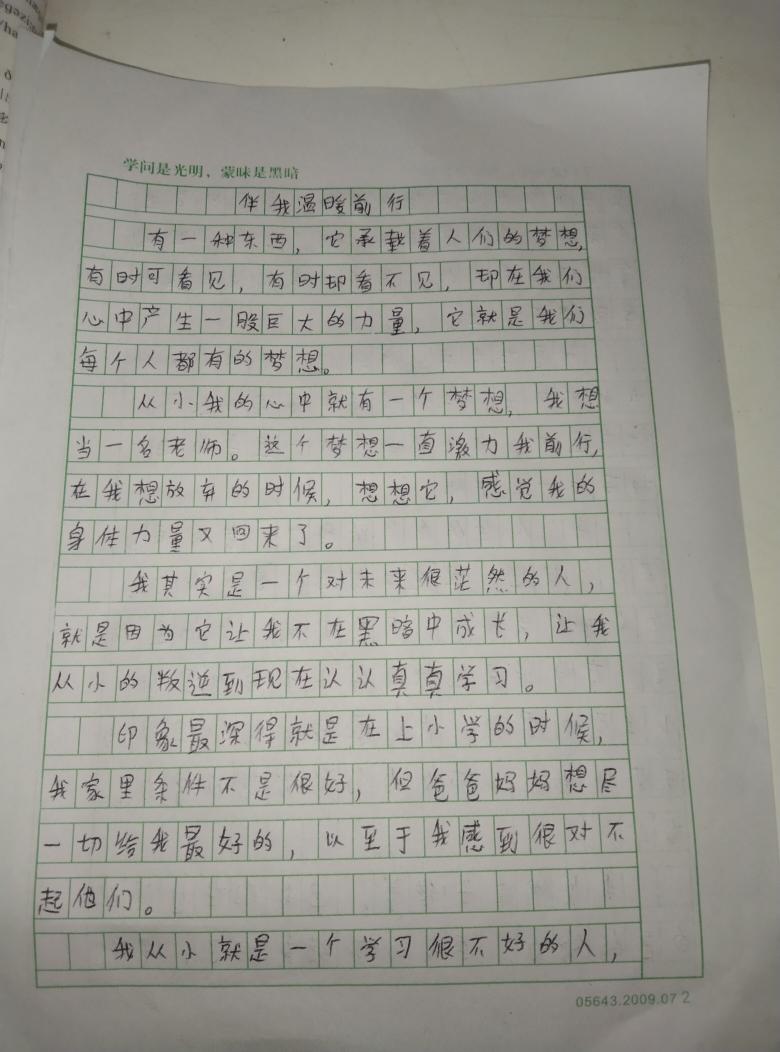 学问是光明，蒙昧是黑暗
伴我温暖前行
有一种东西，它承载着人们的梦想，
有时可看见，有时却看不见，却在我们
心中产生一股巨大的力量，它就是我们
每个人都有的梦想。
从小我的心中就有一个梦想，我想
当一名老师。这个梦想一直激力我前行，
在我想放弃的时候，想想它，感觉我的
身体力量又回来了。
我其实是一个对未来很茫然的人，
就是因为它让我不在黑暗中成长，让我
从小的叛逆到现在认认真真学习。
印象最深得就是在上小学的时候，
我家里条件不是很好，但爸爸妈妈想尽
一切给我最好的，以至于我感到很对不
起他们。
我从小就是一个学习很不好的人，
05643.2009.07 2